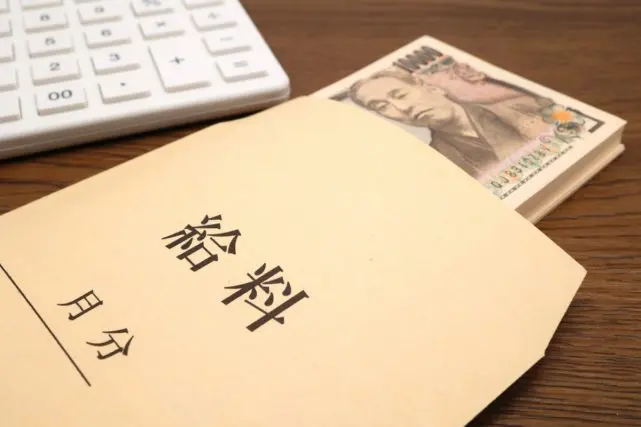 8 9 %
5 6 ×
2 3 +
00 . =
10000
給料
月分